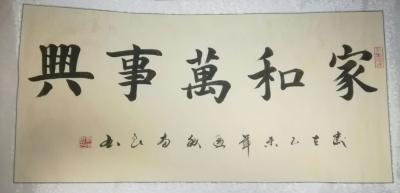 家和萬事興
歲在乙未年書